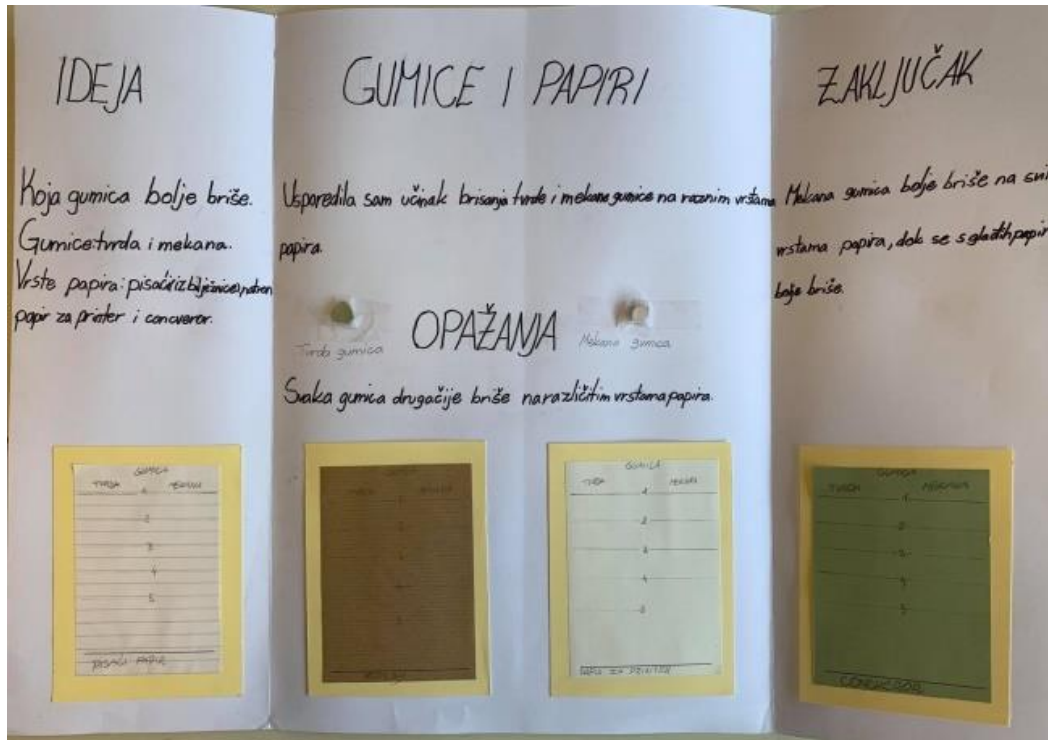 IDEJA
Koja gumica bolje briše.
Gumice: tvrda i mekana.
Vrste papira: pisaći (iz bilježnice), natron
papir za printer i concueror.
GUMICE I PAPIRI
Usporedila sam učinak brisanja tvrde i mekane gumice na raznim vrstama
papira.
Tvrda gumica
OPAŽANJA
Mekana gumica
Svaka gumica drugačije briše na različitim vrstama papira.
ZAKLJUČAK
Mekana gumica bolje briše na svi
vrstama papira, dok se s glatkih papir
bolje briše.
GUMICA
TVRDA MEKANA
1
2
3
4
5
PISAĆI PAPIR
GUMICA
TVRDA MEKANA
1
2
3
4
5
PAPIR ZA PRINTER
GUMICA
TVRDA MEKANA
1